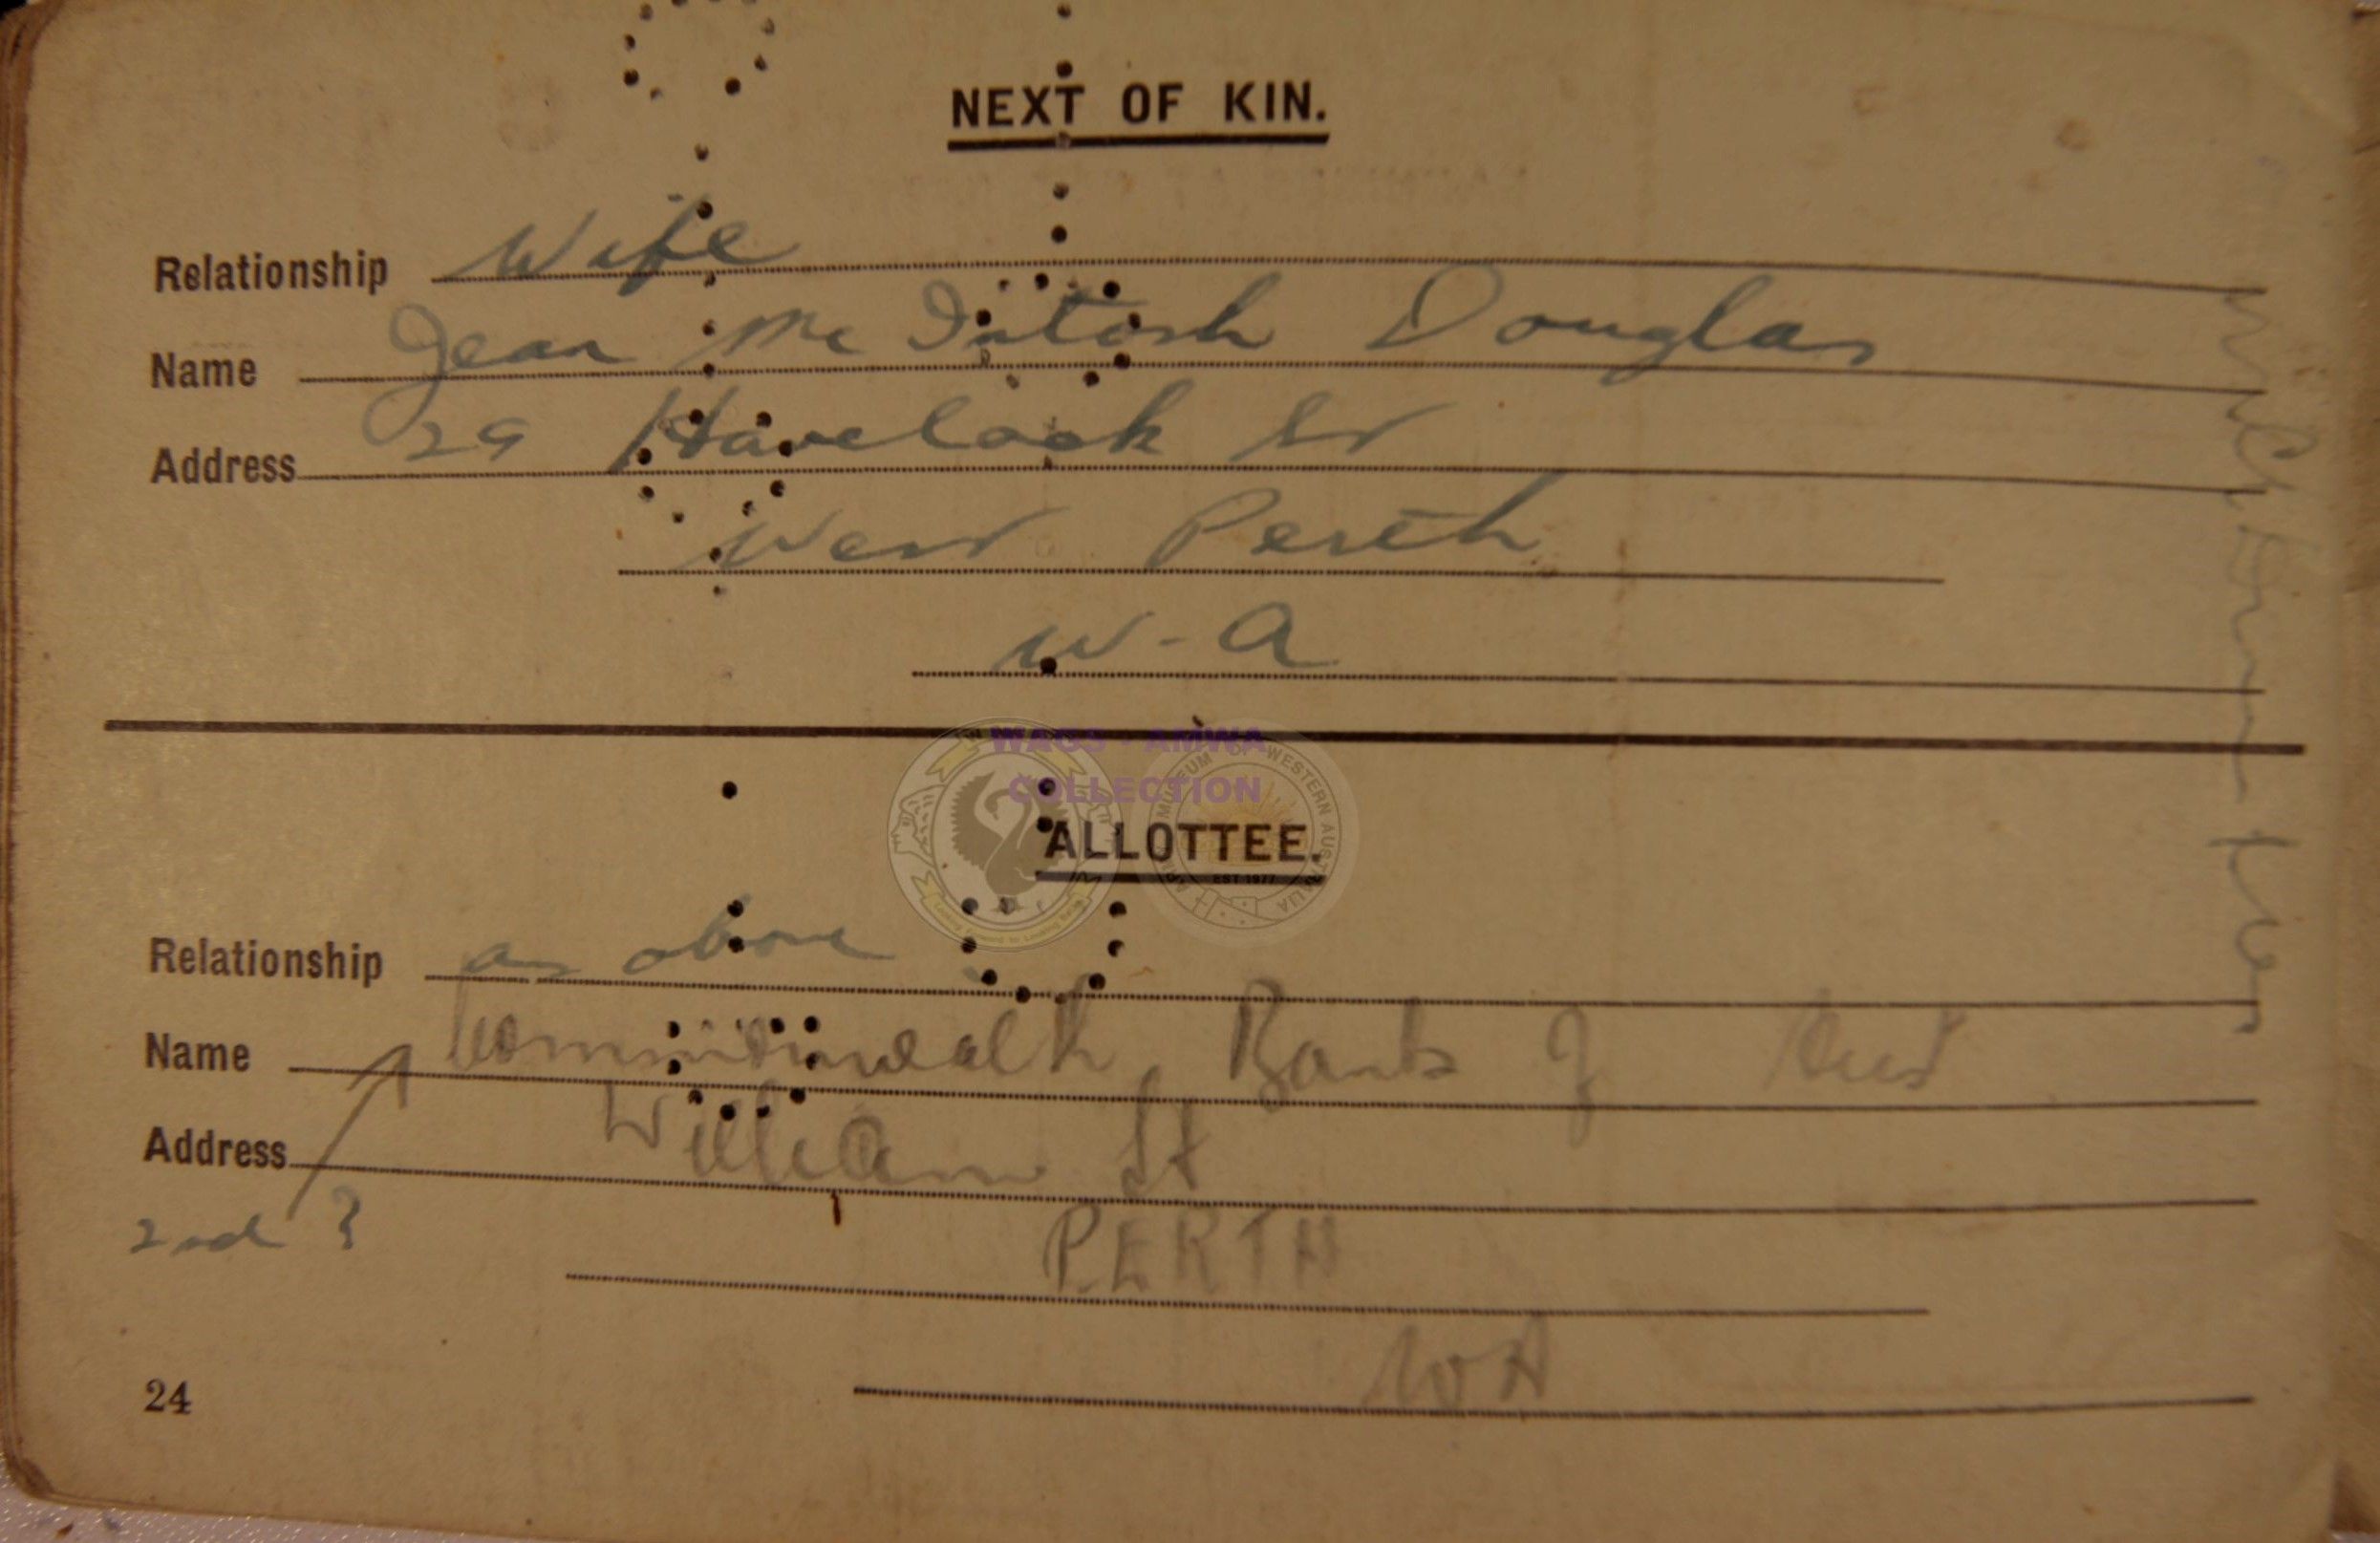 NEXT OF KIN.
Relationship Wife
Name Jean Mc Intosh Douglas
Address 29 Havelock St
West Perth
W-A
WAGS - AMWA
COLLECTION
ALLOTTEE.
Relationship as above
Name Commonwealth Bank of Aust
Address William St
2nd ?
PERTH
WA
24